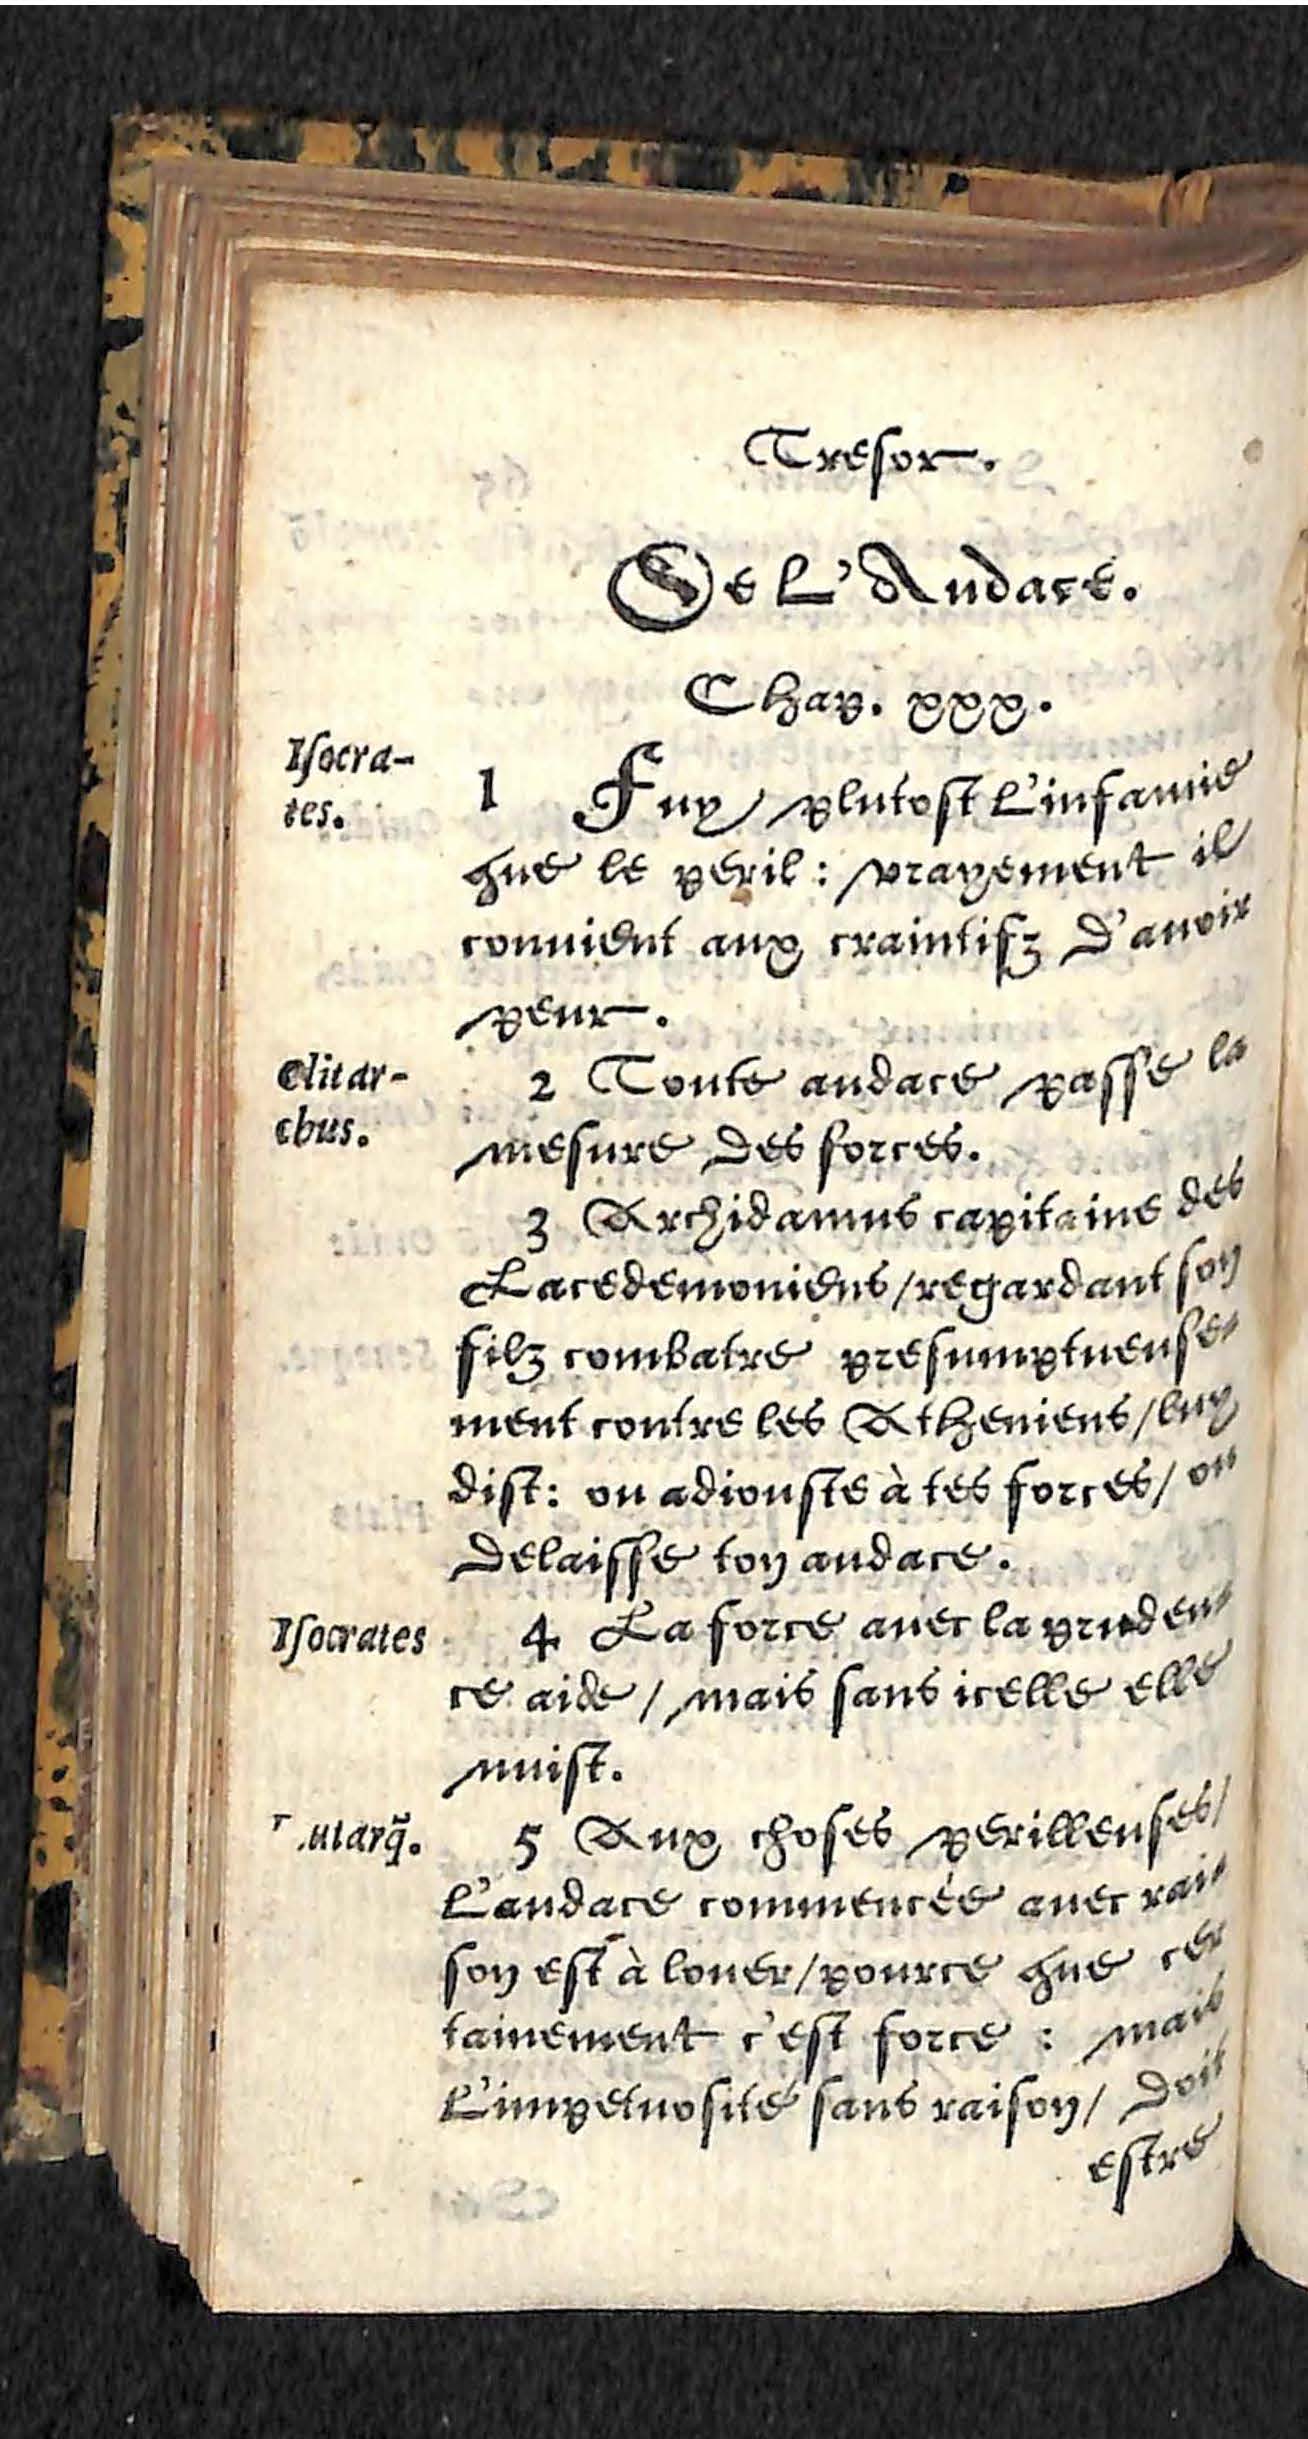 Tresor.
De L'Audace.
Chap. xxx.
Isocra-
tes.
1 Fuy plutost l'infamie
que le peril: vrayement il
conuient aux craintifz d'auoir
peur.
Clitar-
chus.
2 Toute audace passe la
mesure des forces.
3 Archidamus capitaine des
Lacedemoniens/regardant son
filz combatre presumptueuse-
ment contre les Atheniens/luy
dist: ou adiouste à tes forces/ ou
delaisse ton audace.
Isocrates
4 La force auec la pruden-
ce aide/ mais sans icelle elle
nuist.
.utarq̃.
5 Aux choses perilleuses/
L'audace commencée auec rai-
son est à louer/pource que cer
tainement c'est force : mais
L'impetuosité sans raison/ doit
estre